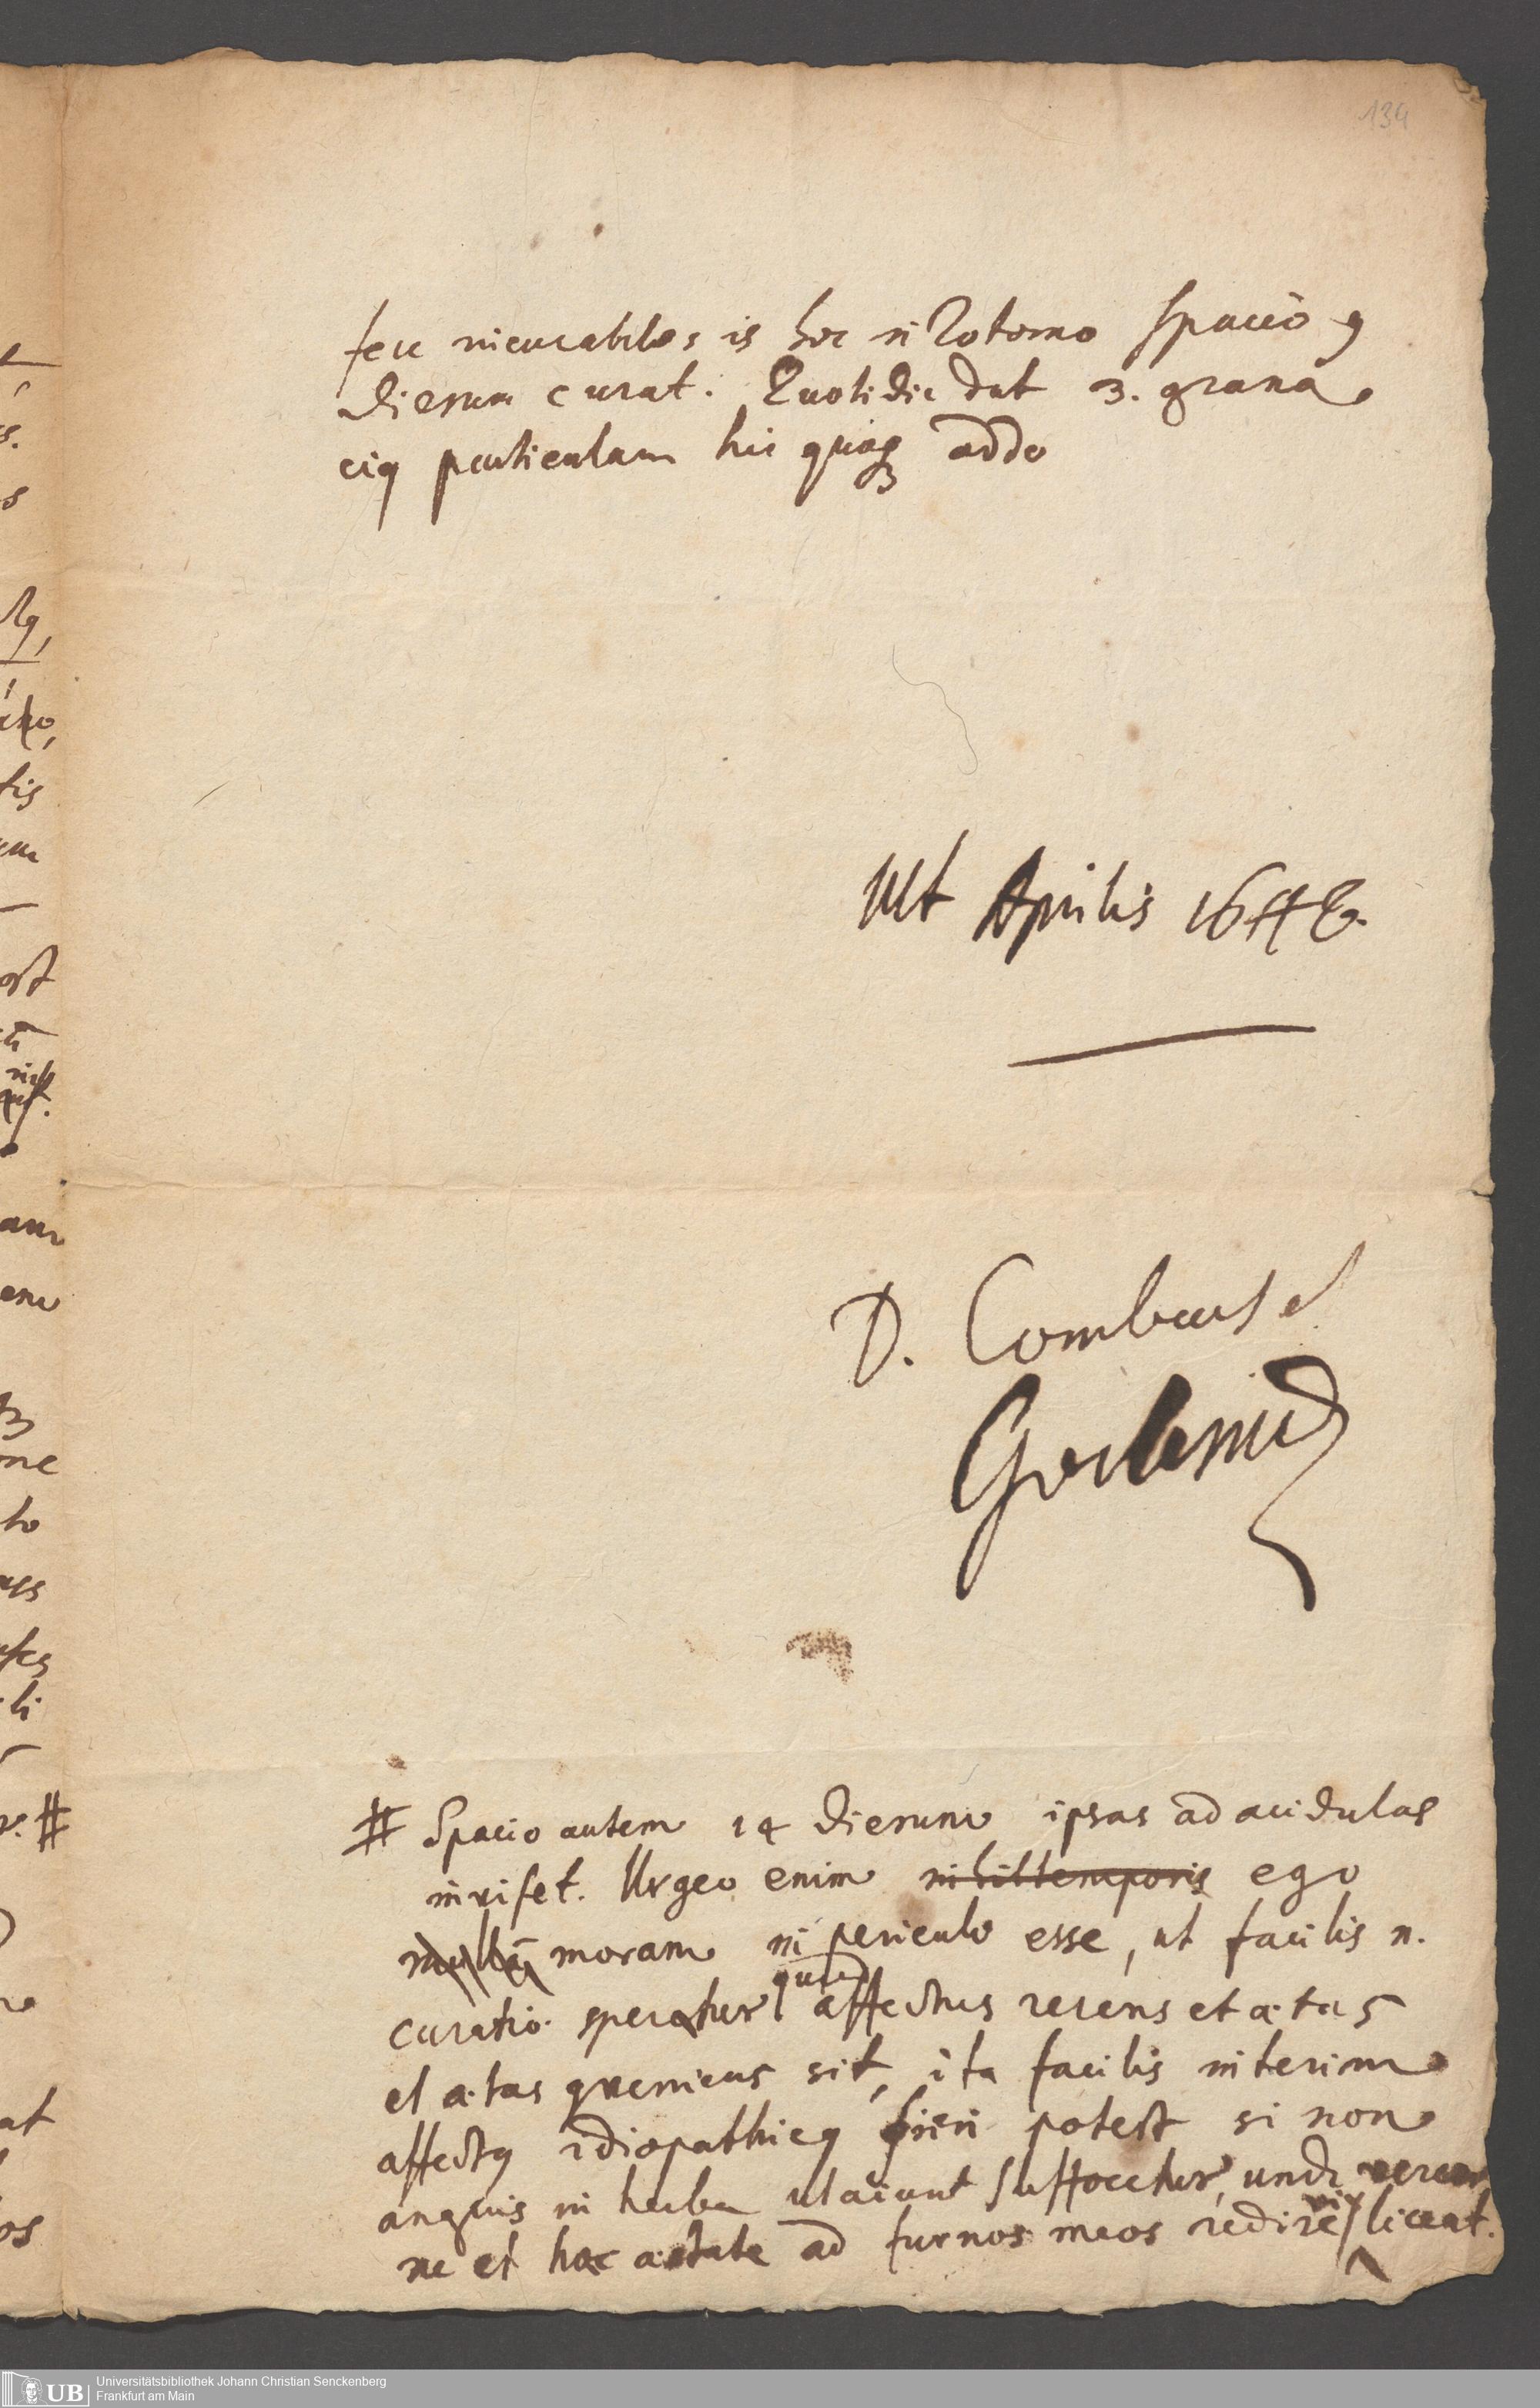 134
incurabiles is hoc spacio 9
dierum curat. Quotidie dat 3. grana
particulam hic quoq addo
Ult Aprilis
D. Combach
Goclenius
# Spacio autem 14 dierum ipsas ad acidulas
inviset. Urgeo enim nihil temporis ego
moram in periculo esse, ut facilis n.
curatio speratur quod affectus recens et ætas
et ætas sit, ita facilis interim
affectq idiopathicq fieri potest si non
anguis in herba ut aiunt suffocetur, unde vereor
ne et hac æstate ad furnos meos redire vix liceat.
UB Universitätsbibliothek Johann Christian Senckenberg
Frankfurt am Main